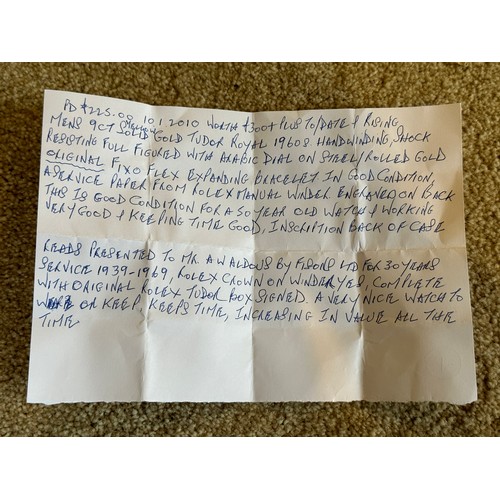 PD £225.00 10.1.2010 WORTH £300+ PLUS TO/DATE & RISING
MENS 9CT YELLOW SOLID GOLD TUDOR ROYAL 1960S HANDWINDING, SHOCK
RESISTING FULL FIGURED WITH ARABIC DIAL ON STEEL/ROLLED GOLD
ORIGINAL FIXO FLEX EXPANDING BRACELET IN GOOD CONDITION,
A SERVICE PAPER FROM ROLEX MANUAL WINDER ENGRAVED ON BACK
THIS IS GOOD CONDITION FOR A 50 YEAR OLD WATCH & WORKING
VERY GOOD & KEEPING TIME GOOD, INSCRIPTION BACK OF CASE
READS PRESENTED TO MR. A WALDOUS BY FISONS LTD FOR 30 YEARS
SERVICE 1939-1969, ROLEX CROWN ON WINDER YES, COMPLETE
WITH ORIGINAL ROLEX TUDOR BOX SIGNED. A VERY NICE WATCH TO
OR KEEP, KEEPS TIME, INCREASING IN VALUE ALL THE
TIME